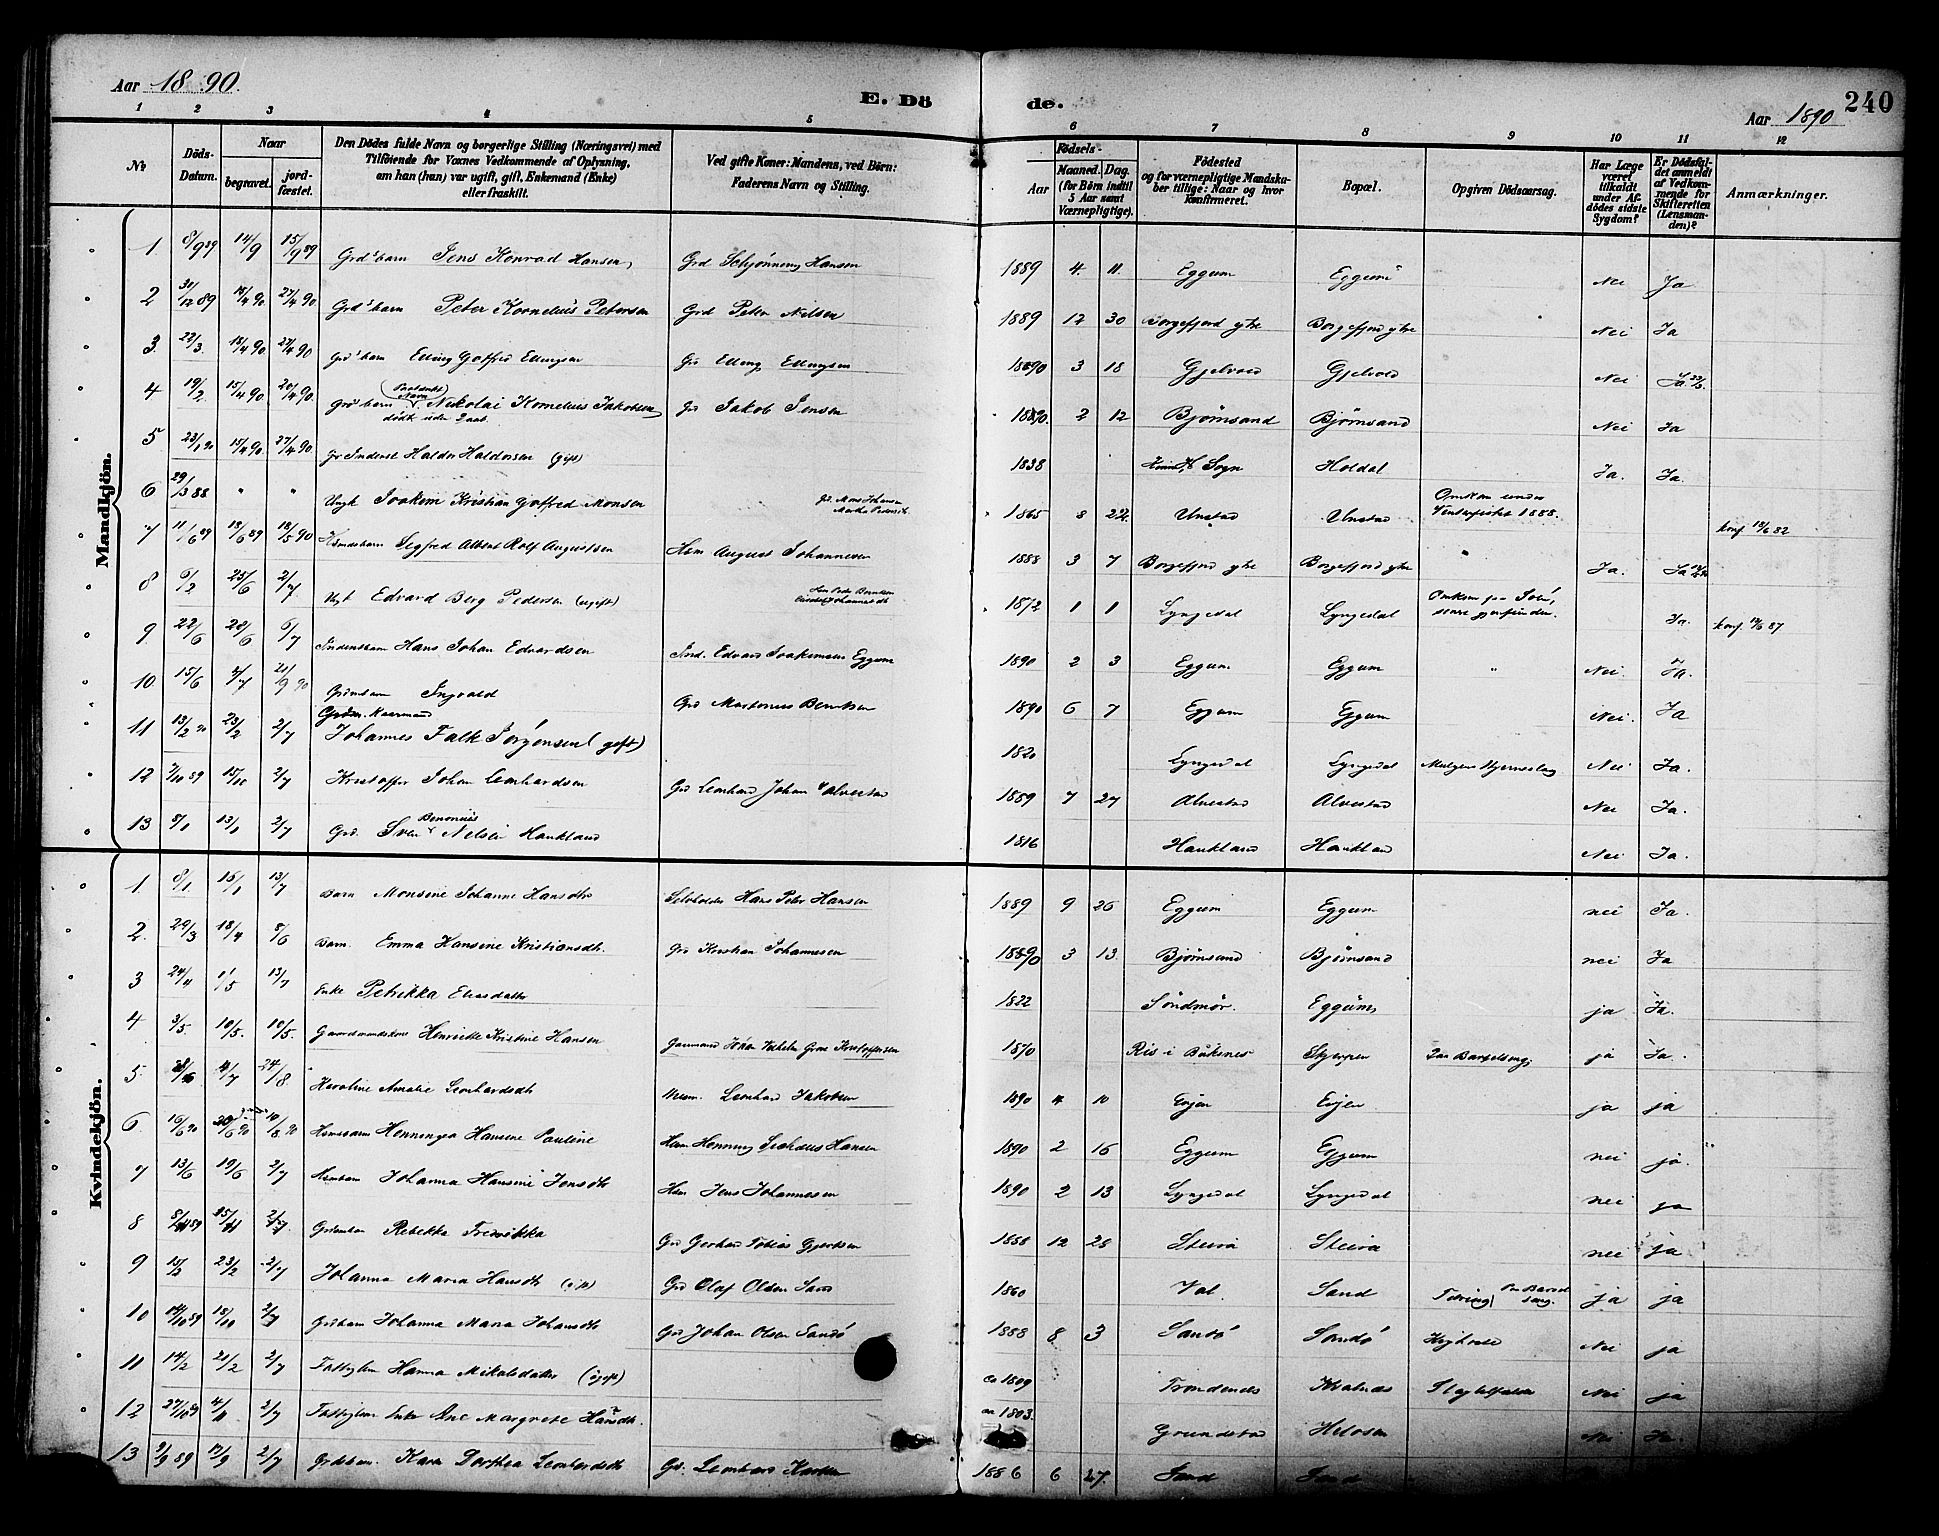 Aar 1890.
E. Dö de.
240
Aar 1890
1 2 3 4 5 6 7 8 9 10 11 12
№
Döds-Datum.
Naar
begravet.
jord-fæstet.
Den Dödes fulde Navn og borgerlige Stilling (Næringsvei) med
Tilföiende for Voxnes Vedkommende af Oplysning,
om han (hun) var ugift, gift, Enkemand (Enke)
eller fraskilt.
Ved gifte Koner: Mandens, ved Börn:
Faderens Navn og Stilling.
Födsels-
Aar
Maaned. Dag.
(for Börn indtil
5 Aar samt
Værnepligtige).
Födested
og for værnepligtige Mandska-
ber tillige: Naar og hvor
konfirmeret.
Bopæl.
Opgiven Dödsaarsag.
Har Læge
været
tilkaldt
under Af-
dödes sidste
Sygdom?
Er Dödsfal-
det anmeldt
af Vedkom-
mende for
Skifteretten
(Lensman-
den)?
Anmærkninger.
Mandkjön.
1 8/9 89 14/9 15/9 89 Grd's barn Jens Konrad Hansen Grd Schjønning Hansen 1889 4. 11. Eggum Eggum Nei Ja
2 30/12 89 18/4 90 27/4 90 Grd's barn Peter Kornelius Petersen Grd Peter Nilsen 1889 12 30 Borgefjord ytre Borgefjord ytre Nei Ja
3. 22/3. 18/4 90 27/4 90 Grd's barn Elling Gotfred Ellingsen Gr Elling Ellingsen 1890 3 18 Gjelvold Gjelvold Nei Ja
4 19/2 15/4 90 20/4 90. Grd's barn Nikolai Kornelius Jakobsen Gr Jakob Jensen 1890. 2 12 Bjørnsand Bjørnsand Nei Ja
5 15/4 90 27/4 90 Inderst Haldor Haldorsen (gift) 1838 Sogn Holdal Ja. Ja.
6 29/3 88 " " Ungk Joakim Kristian Gotfred Monsen Gr. Mons Johansen 1865 8 22. Unstad Unstad Omkom under Vinterfisket 1888. konf 18/6 82
7 11/6 89 19/6 89 18/5 90 Hsmdsbarn Sigfred Albert Rolf Augustsen Hsm August Johannesen 1888 3 7 Borgefjord ytre Borgefjord ytre " Ja. Ja
8 6/2 25/6 2/7 Ungk Edvard Berg Pedersen (ugift) 1872 1 1 Lyngedal Lyngedal Omkom paa Søen, Ja. konf 87
9 22/6 6/7 Inderstbarn Hans Johan Edvardsen Ind. Edvard Joakimsen Eggum 1890 2 3 Eggum Eggum " Nei Ja.
10. 15/6 2/7 21/9 90 Grdmbarn Ingvald Grd Martinus Berntsen 1890 6 7 Eggum Eggum Nei. Ja
11 13/2 90 23/2 2/7 Grdm. Kaarmand Johannes Falk Jørgensen (gift) 1820 Lyngedal Lyngedal Nei Ja.
12 7/10 89 15/10 2/7 Kristoffer Johan Leonhardsen Grd Leonhard Johan Alvestad 1889 7 27 Alvestad Alvestad Nei Ja.
13 8/1 13/1 2/7 Grd. Sven Benonius Nilsen Haukland 1816 Haukland Haukland Nei Ja.
Kvindekjön.
1 8/1 15/1 13/7 Barn Monsine Johanne Hansdtr Selveholder Hans Peter Hansen 1889 9 26 Eggum Eggum nei Ja.
2. 29/3 18/4 8/6 Barn. Emma Hansine Kristiansdtr. Grd Kristian Johannesen 1890 3 13. Bjørnsand Bjørnsand nei Ja
3 24/4 1/5 13/7 Enke Petrikka Eliasdatter 1822 Søndmør. Eggum ja Ja.
4 3/5 10/5. 10/5. Gaardmandskone Henriette Kristine Hansen 1870 Ris i Buksnes paa Barselseng ja Ja.
5. 4/7 24/8 Karoline Amalie Leonhardsdtr Leonhard Jakobsen 1890 4 10 Evjen Evjen ja ja
6. 16/6 90 10/8 90 Hsmbarn Henningea Hansine Pauline Hsm Henning Hansen 1890 2 16 Eggum Eggum nei ja.
7 13/6 19/6 2/7 Hsmbarn Johanna Hansine Jensdtr Hsm Jens Johannesen 1890 2 13 Lyngedal Lyngedal nei ja
8 15/11 2/7. Grdmbarn Rebekka Fredrikka Grd Gerhard Tobias Gjertsen 1888 12 28 Steira Steira nei ja
9 15/2 23/2 2/7 Johanna Maria Hansdtr (gift) Grd Olaf Olsen Sand 1860 Val Sand Tæring ja ja
10 14/10 89 18/10 2/7 Grdbarn Johanna Maria Johansdtr Grd Johan Olsen Sandø 1888 8 3 Sandø Sandø Kighoste Nei ja
11 14/2 21/2 2/7 Fattiglem Hanna Mikalsdatter (ugift) ca 1809 Trondenes Nei ja
12 27/10 89 4/11 2/7 Fattiglem Enke Ane Margrete Hansdtr. ca 1803. Grundstad Nei Ja.
13 9/9 89 17/9 2/7 Grdsbarn. Karn Dorthea Leonhardsdtr Gd. Leonhard 1886 6 27. Sand Sand